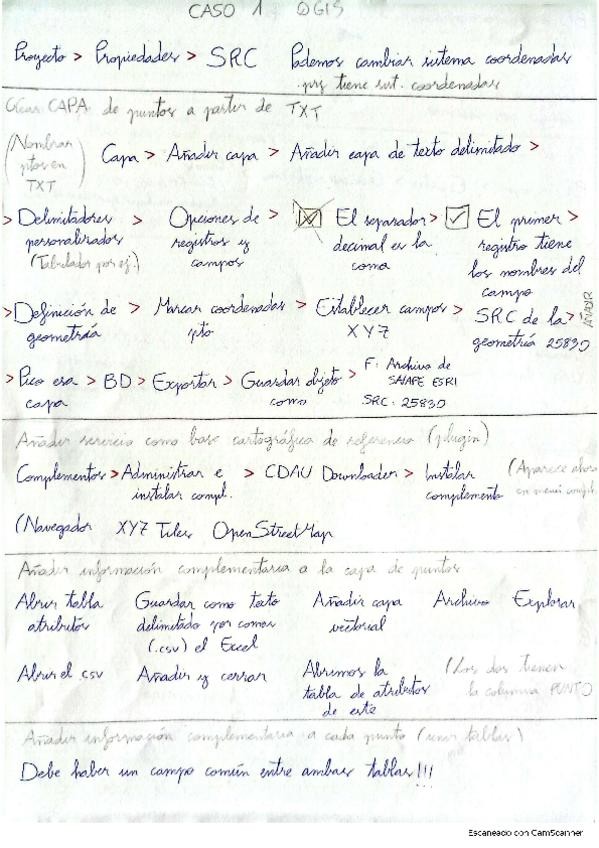 CASO 1 QGIS
Proyecto > Propiedades > SRC Podemos cambiar sistema coordenadas
prj tiene sist. coordenadas
Crear CAPA de puntos a partir de TXT
(Nombrar ptos en TXT) Capa > Añadir capa > Añadir capa de texto delimitado >
> Delimitadores > Opciones de > El separador > El primer >
personalizados registros y decimal es la registro tiene
(Tabulador por ej.) campos coma los nombres del
campo
> Definición de > Marcar coordenadas > Establecer campos > SRC de la >
geometría pto XYZ geometría 25830
AÑADIR
> Pico esa > BD > Exportar > Guardar objeto > F: Archivo de
capa como SHAPE ESRI
SRC: 25830
Añadir servicio como base cartográfica de referencia (plugin)
Complementos > Administrar e > CDAU Downloader > Instalar (Aparece ahora
instalar compl. complemento en menú compl.
(Navegador XYZ Tiles OpenStreetMap
Añadir información complementaria a la capa de puntos
Abrir tabla Guardar como texto Añadir capa Archivo Explorar
atributos delimitado por comas vectorial
(.csv) el Excel
Abrir el csv Añadir y cerrar Abrimos la (Los dos tienen
tabla de atributos la columna PUNTO
de este
Añadir información complementaria a cada punto (unir tablas)
Debe haber un campo común entre ambas tablas!!!
Escaneado con CamScanner